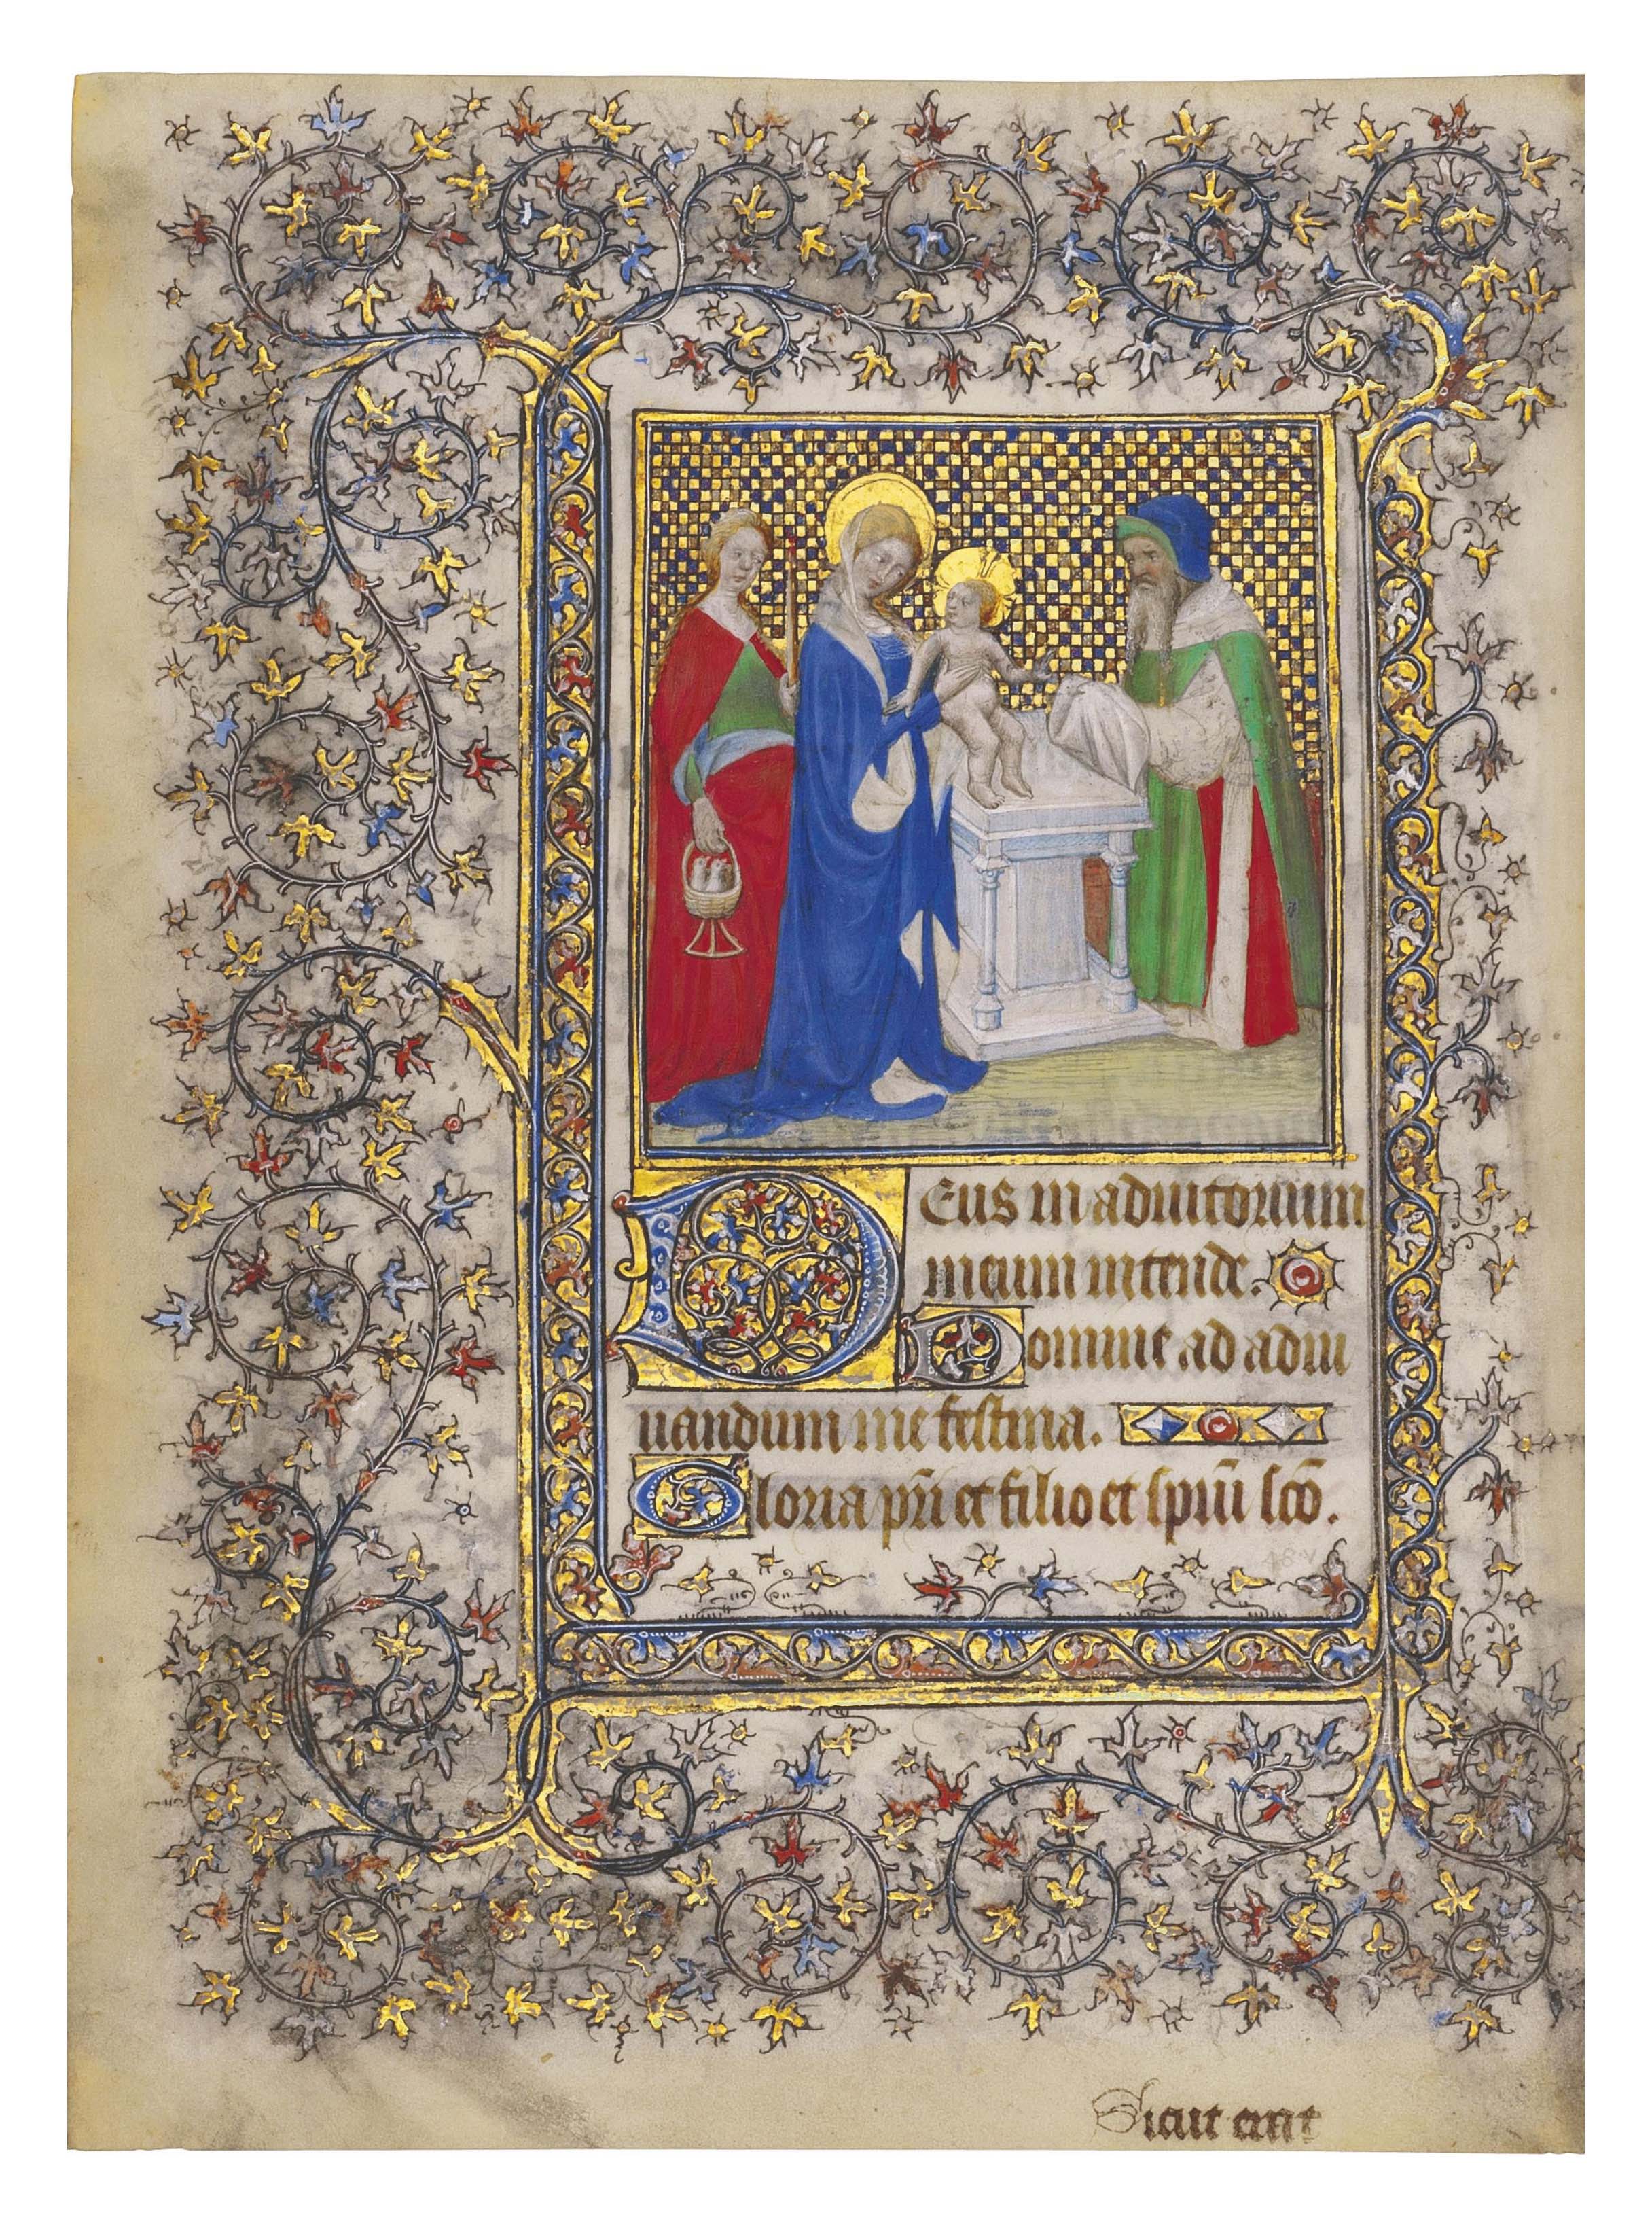 Deus in adiutorium
meum intende.
Domine ad adiu
uandum me festina.
Gloria pr̄i et filio et spiūi sc̄o.
48v
Sicut erat